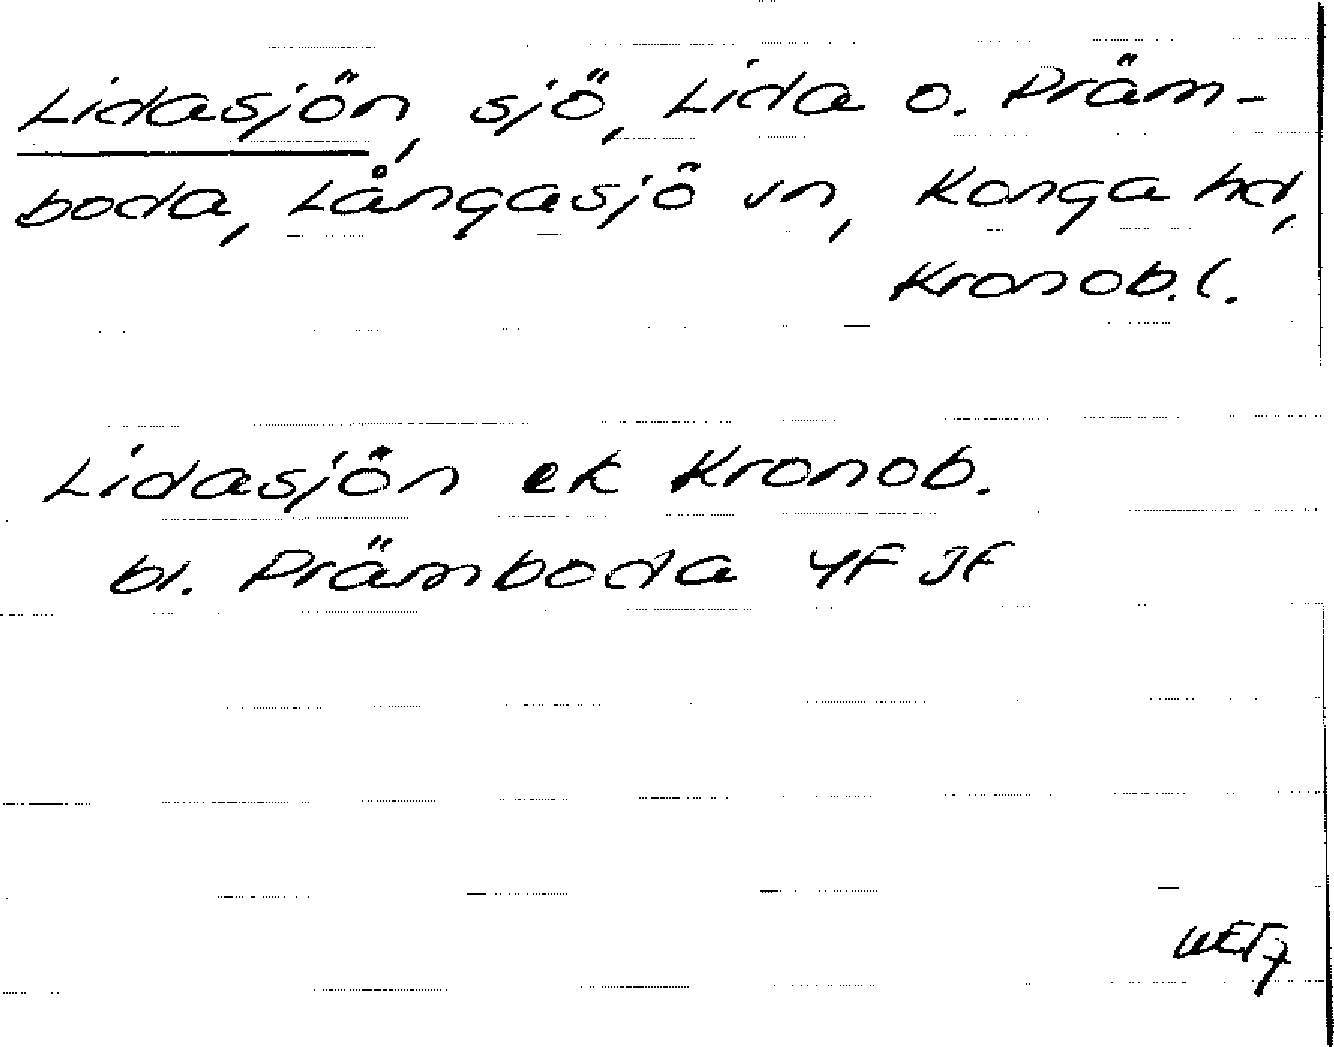 Lidasjön, sjö, Lida o. Präm-
boda, Långasjö sn, Konga hd,
Kronob.l.
Lidasjön ek Kronob.
bl. Prämboda 4F JF